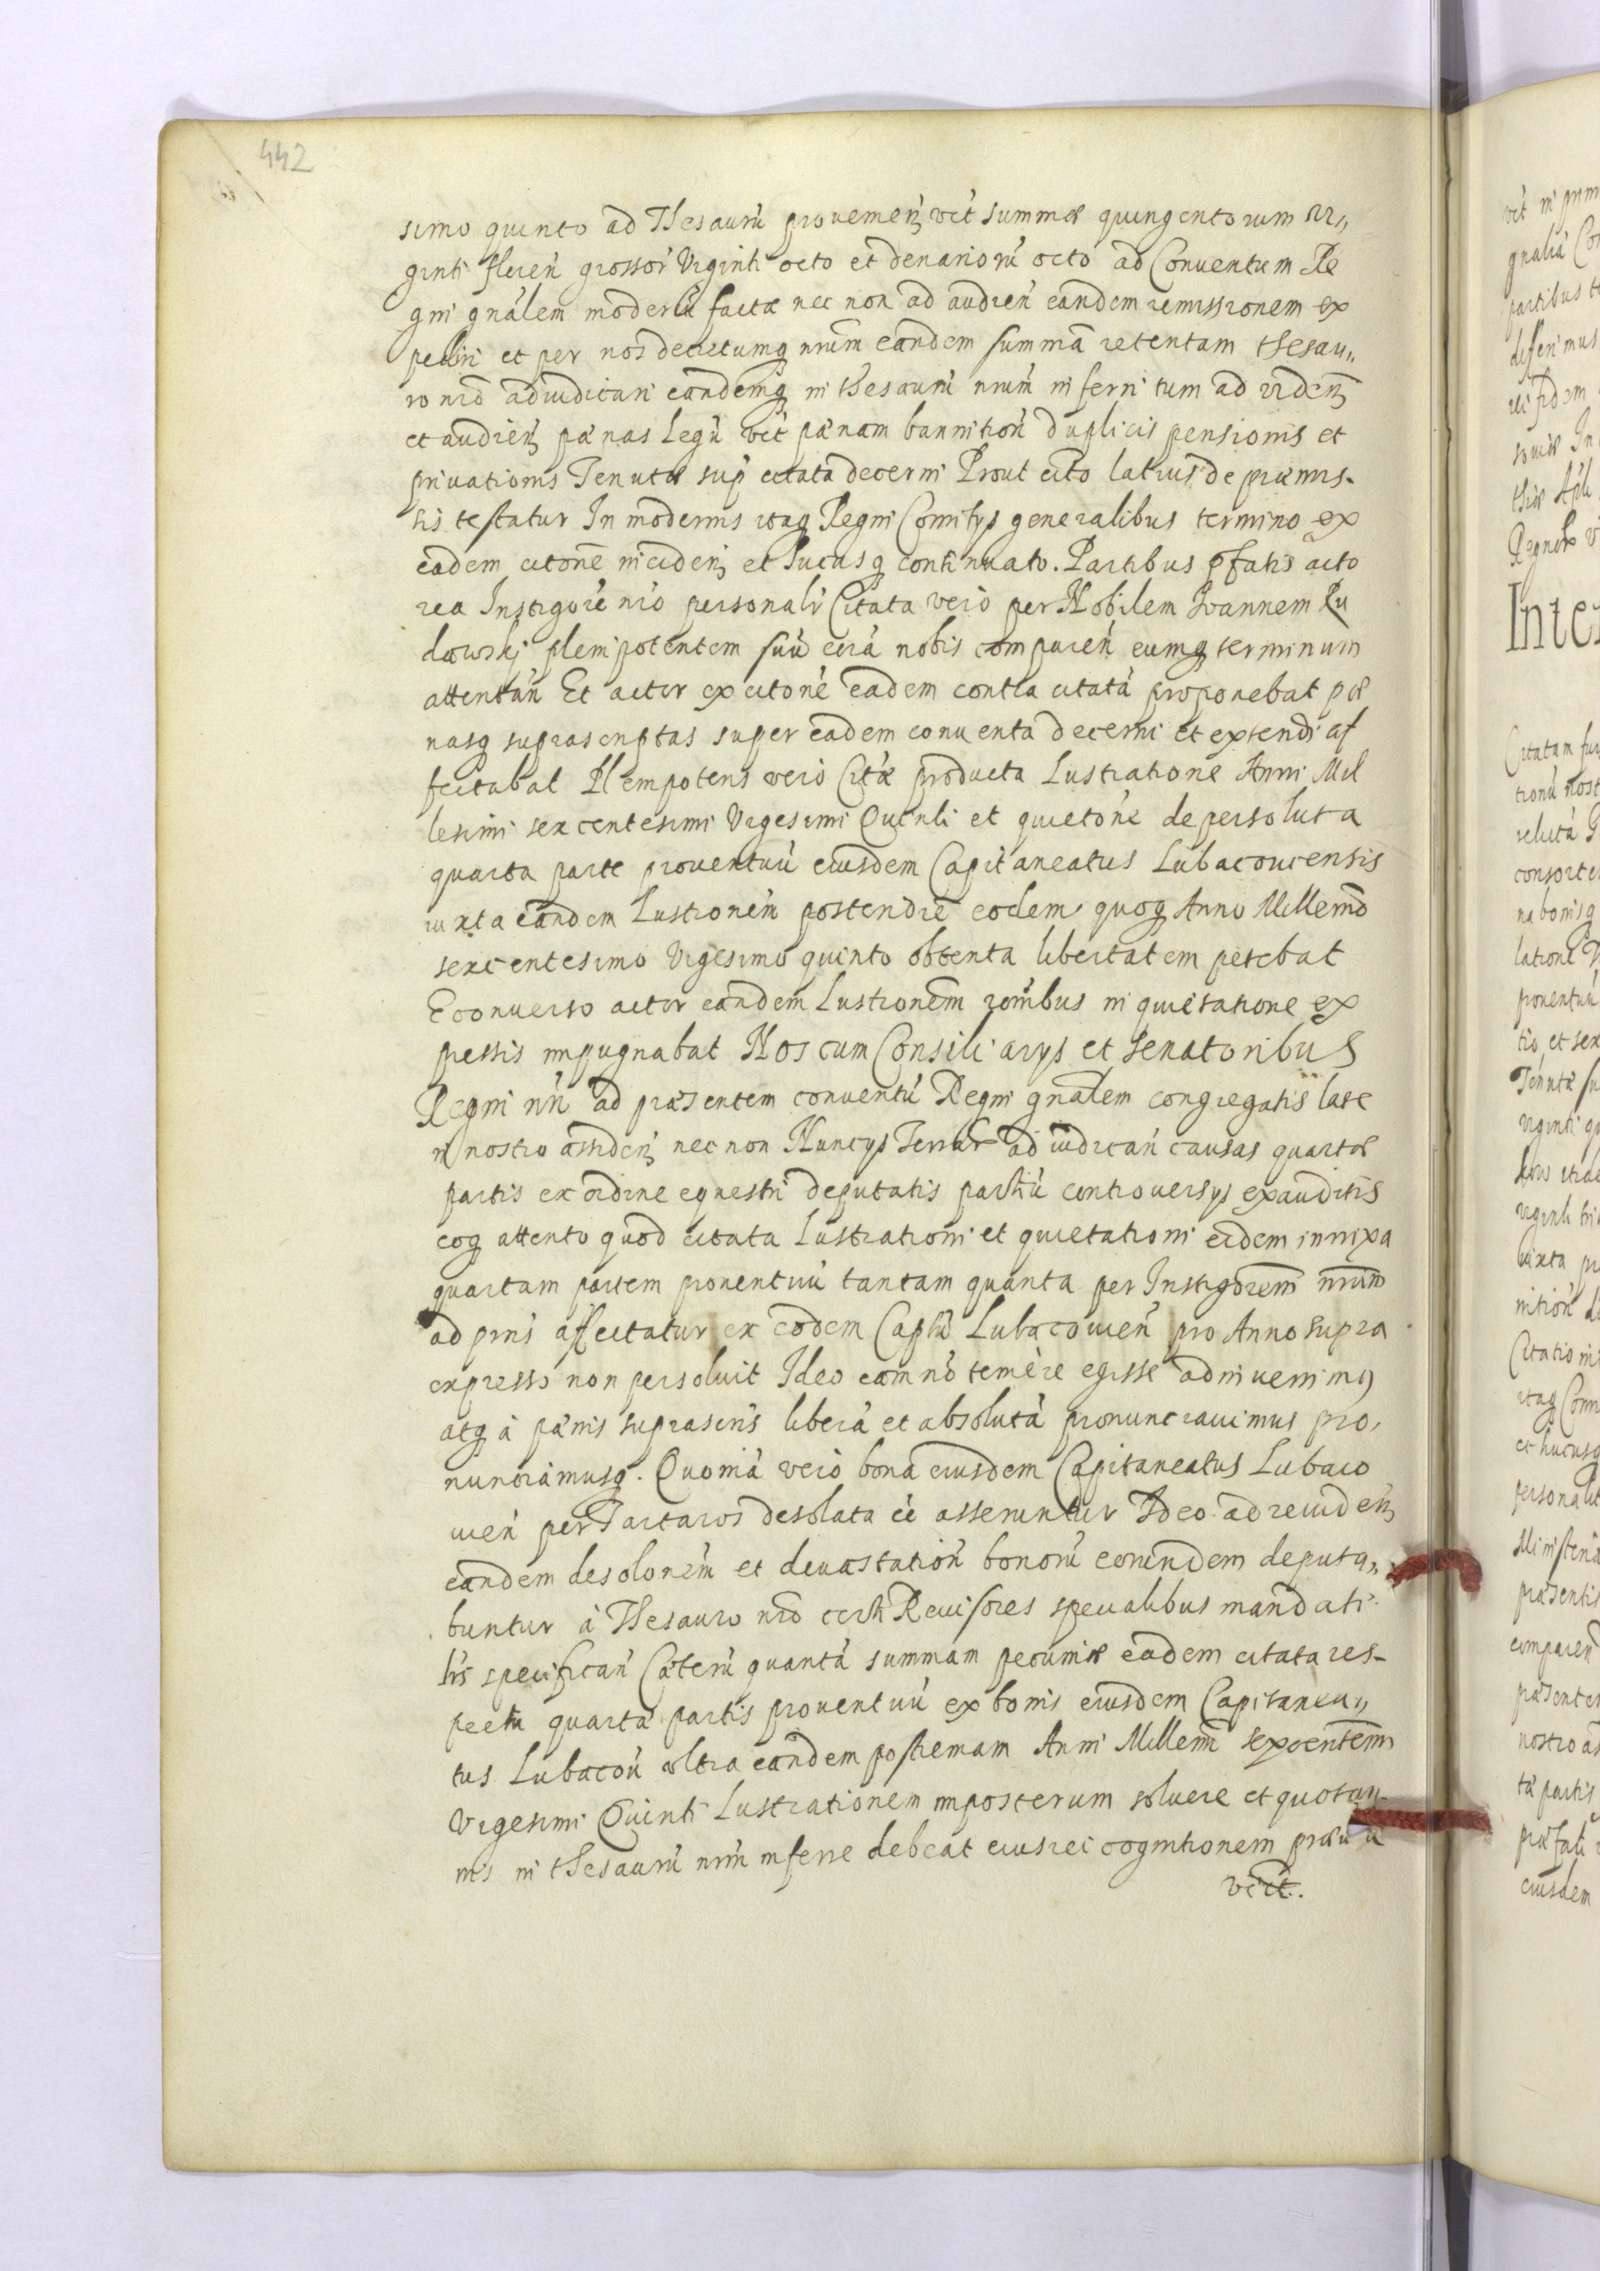 442
simo quinto ad Thesaurū prouenien̄ vel summæ quingentorum vi,,
ginti floren̄ grossor̄ Viginti octo et denariorū octo ad Conuentum Re
gni gnálem modernū factæ nec non ad audien̄ eandem remissionem ex
pediri et per nos decretumq nrūm eandem summā retentam thesau,,
ro nrō adiudicari eandemq in thesaurū nrūm inferri tum ad viden̄
et audien̄ pænas Legū vel pænam bannition̄ duplicis pensionis et
priuationis Tenutæ sup citata decerni Prout cito latius de præmis-
sis testatur In modernis itaq Regni Comitys generalibus termino ex
eadem citoné inciden̄ et hucusq continuato. Partibus pfatis acto
rea Instigoré nrō personalr̄ Citata verò per Nobilem Ioannem Ru
dowskj plenipotentem suū corā nobis comparen̄ eumq terminum
attentan̄ Et actor ex citoné eadem contra citatā proponebat pæ
nasq suprascriptas super eadem conuenta decerni et extendi af
fectabat Plenipotens verò Citæ producta Lustratione Anni Mil
lesimi sexcentesimi Vigesimi Quinti et quietoné de persoluta
quarta parte prouentuū eiusdem Capitaneatus Lubacouiensis
iuxta eandem Lustronem̄ postendré eodem quoq Anno Millemō
sexcentesimo Vigesimo quinto obtenta libertatem petebat
Econuerso actor eandem Lustronem̄ ronibus in quietatione ex
pressis impugnabat Nos cum Consiliarys et Senatoribus
Regni nr̄i ad præsentem conuentū Regni gnálem congregatis late
ri nostro assiden̄ nec non Nuncys Terrar̄ ad iudican̄ causas quartæ
partis ex ordine equestri deputatis partiū controuersys exauditis
eoq attento quod citata Lustrationi et quietationi eidem innixa
quartam partem prouentuū tantam quanta per Instigorem̄ nrūm
ad prn̄s affectatur ex eodem Captū Lubacouien̄ pro Anno supra
expresso non persoluit Ideo eam nō temère egisse adinuenimus
atq à pænis suprascris̄ liberā et absolutā pronunciauimus pro,
nunciamusq. Quoniā verò bona eiusdem Capitaneatus Lubaco
uien̄ per Tartaros desolata eē asseruntur Ideo ad reuiden̄
eandem desolonem̄ et deuastation̄ bonorū eorundem deputa,,
buntur à Thesauro nrō certi Reuisores specialibus mandati
tis specifican̄ Cæterū quantā summam pecuniæ eadem citata res-
pectu quartæ partis prouentuū ex bonis eiusdem Capitanea,,
tus Lubacou̅ vltra eandem postremam Anni Millemī sexcentemī
Vigesimi Quinti Lustrationem imposterum soluere et quotan-
nis in thesaurū nrūm inferre debeat eius rei cognitionem